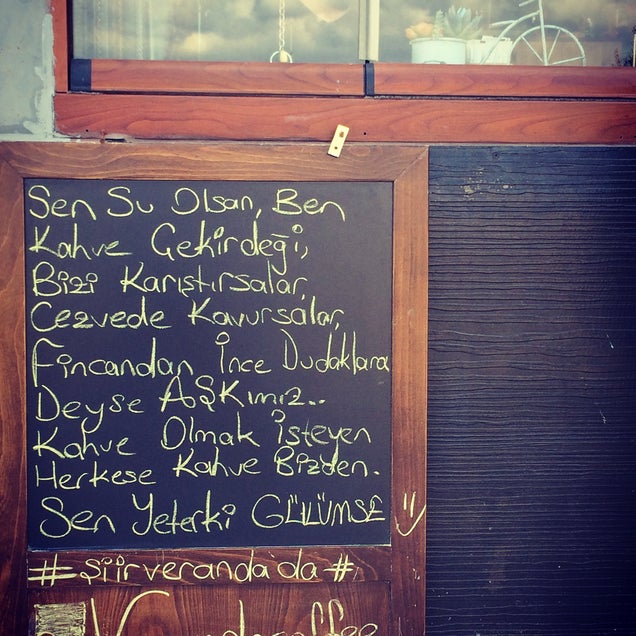 Sen Su Olsan, Ben
Kahve Çekirdeği,
Bizi Karıştırsalar,
Cezvede Kavursalar,
Fincandan İnce Dudaklara
Deyse AŞKımız..
Kahve Olmak İsteyen
Herkese Kahve Bizden.
Sen Yeterki GÜLÜMSE =)
#şiirveranda'da#